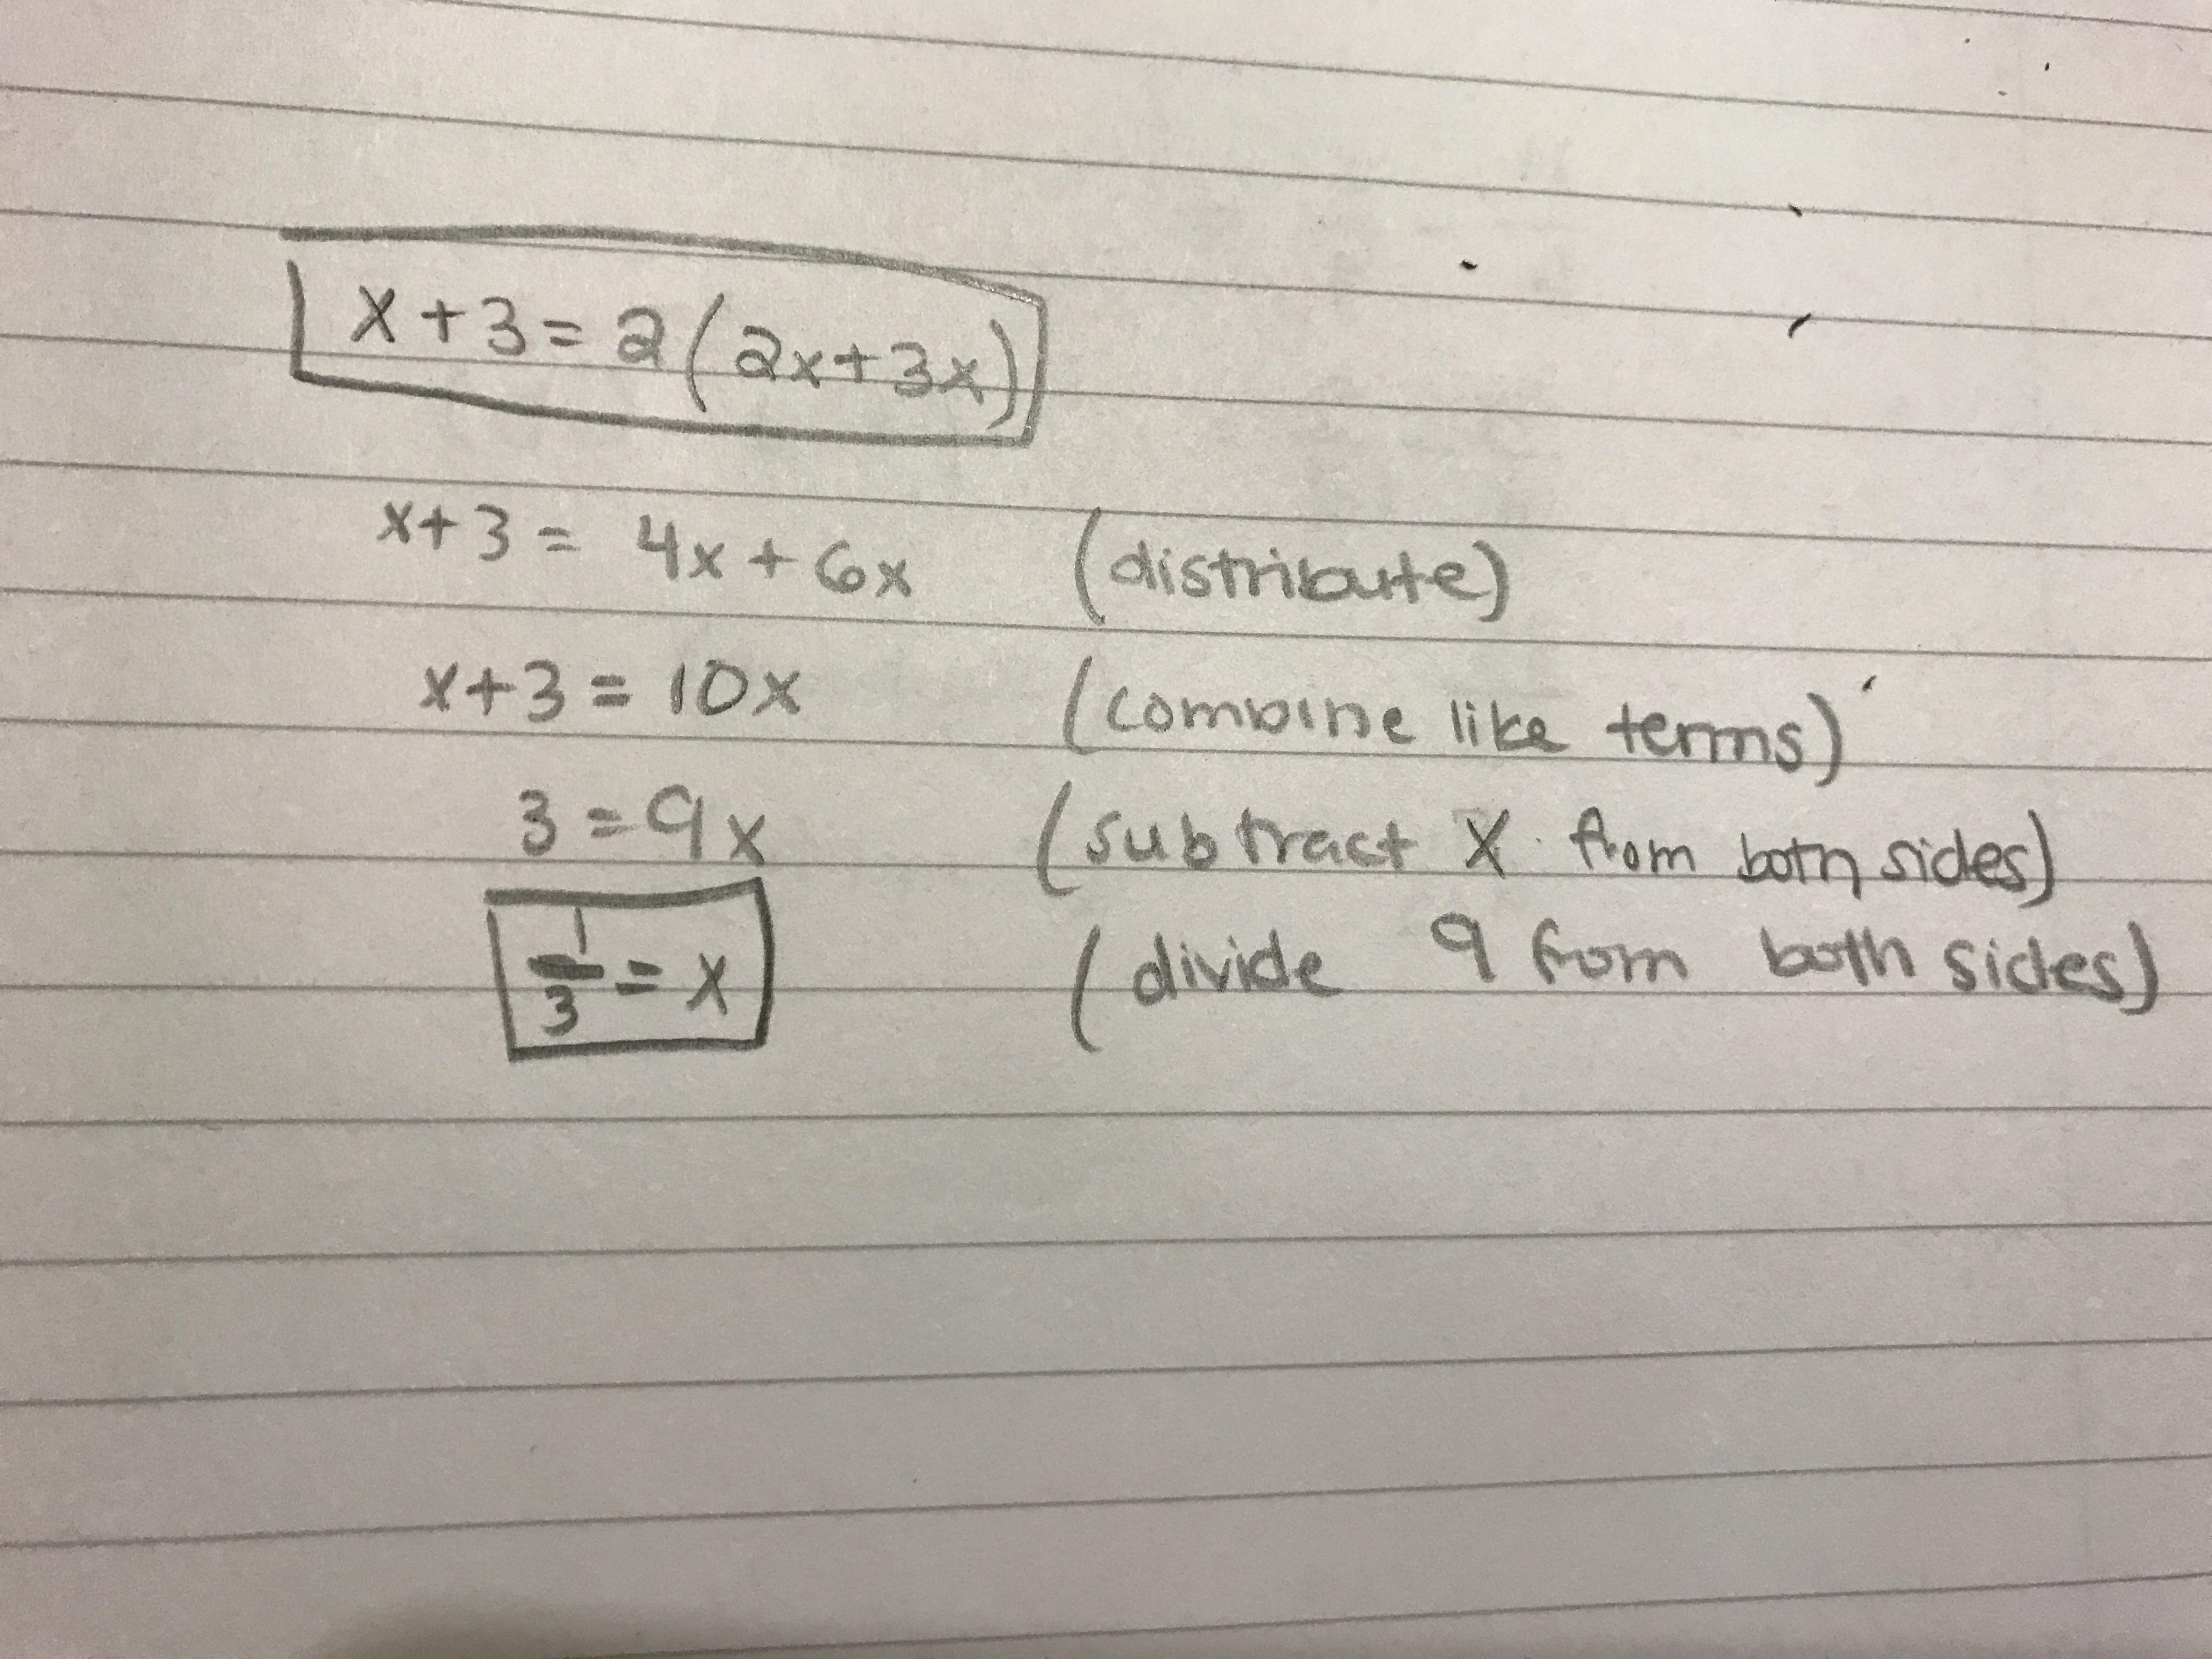 x+3=2(2x+3x)
x+3= 4x+6x (distribute)
x+3=10x (combine like terms)
3=9x (subtract x from both sides)
1/3=x (divide 9 from both sides)